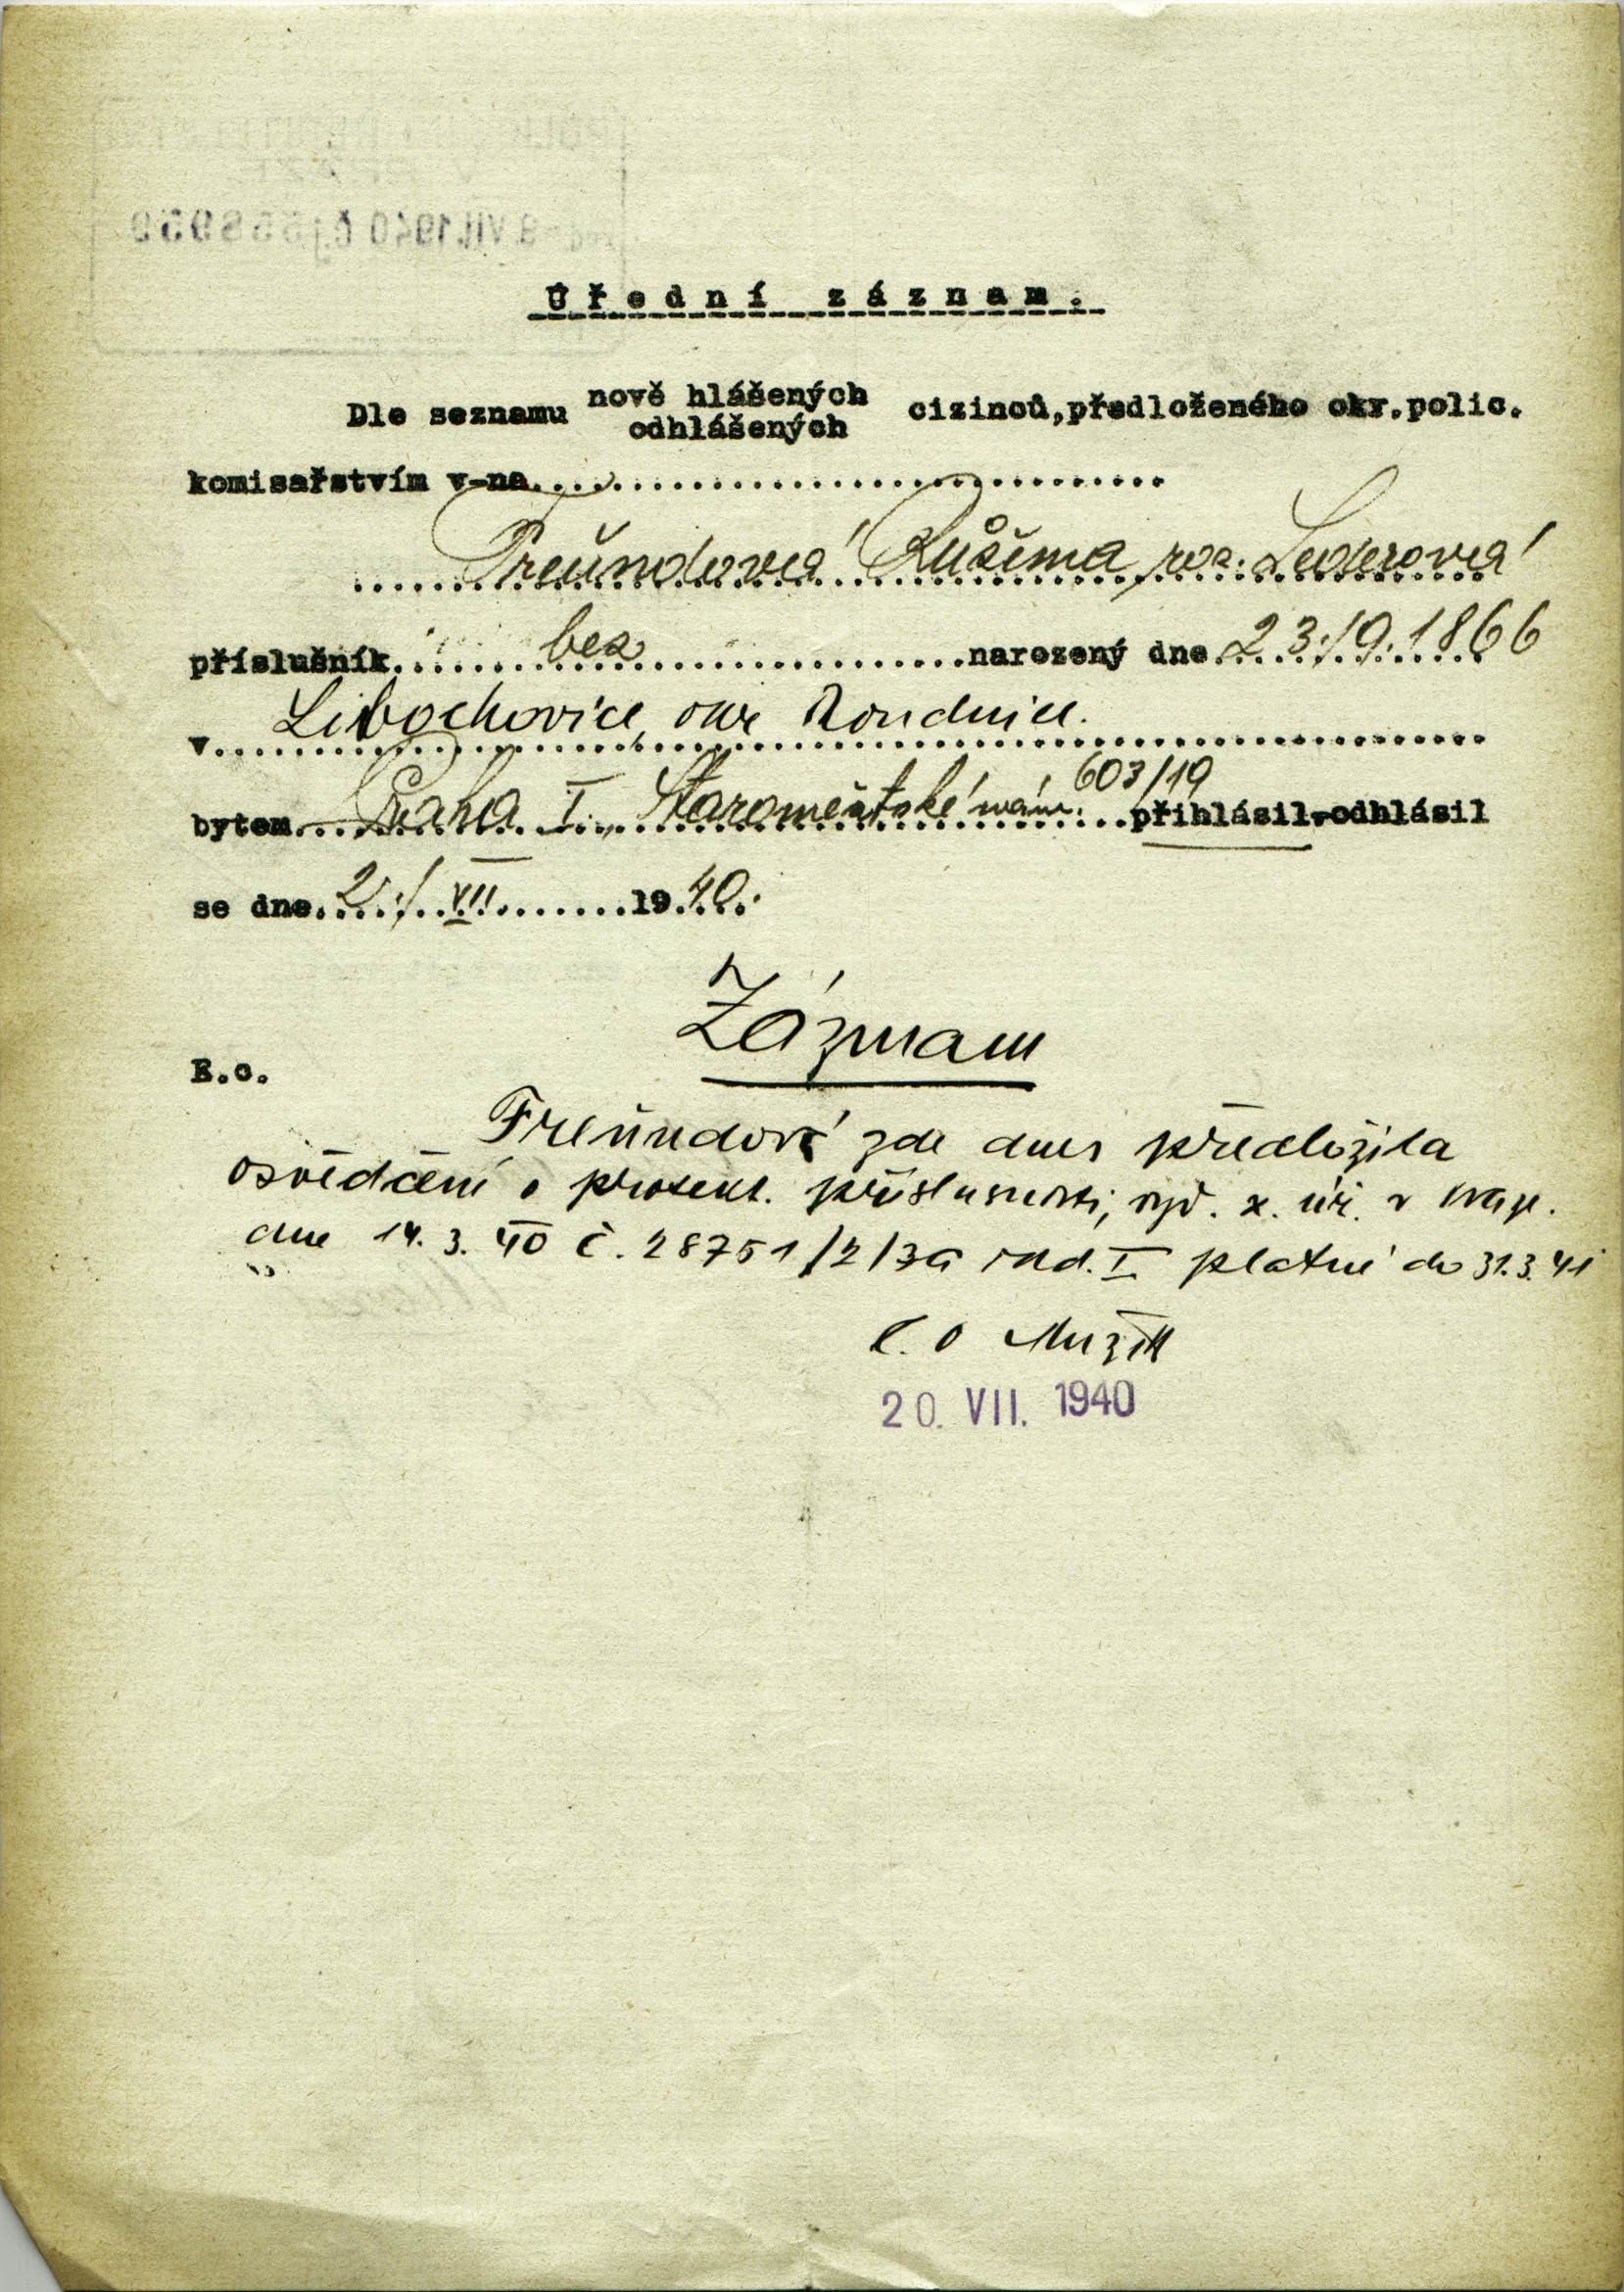 Úřední záznam.
Dle seznamu nově hlášených odhlášených cizinců, předloženého okr. polic.
komisařstvím v-na
Freundová Růžena, roz. Lederová
příslušník bez narozený dne 23./9. 1866
v Libochovice, okr Roudnice.
bytem Praha I., Staroměstské nám. 603/19 přihlásil-odhlásil
se dne 2./VII 1940.
Záznam
E.o.
Freundová zde dnes předložila
osvědčení o protekt. příslušnosti, vyd. z. úř. v Praze
dne 14. 3. 40 č. 28751/2/3a rkd. I platné do 31.3.41
20. VII. 1940